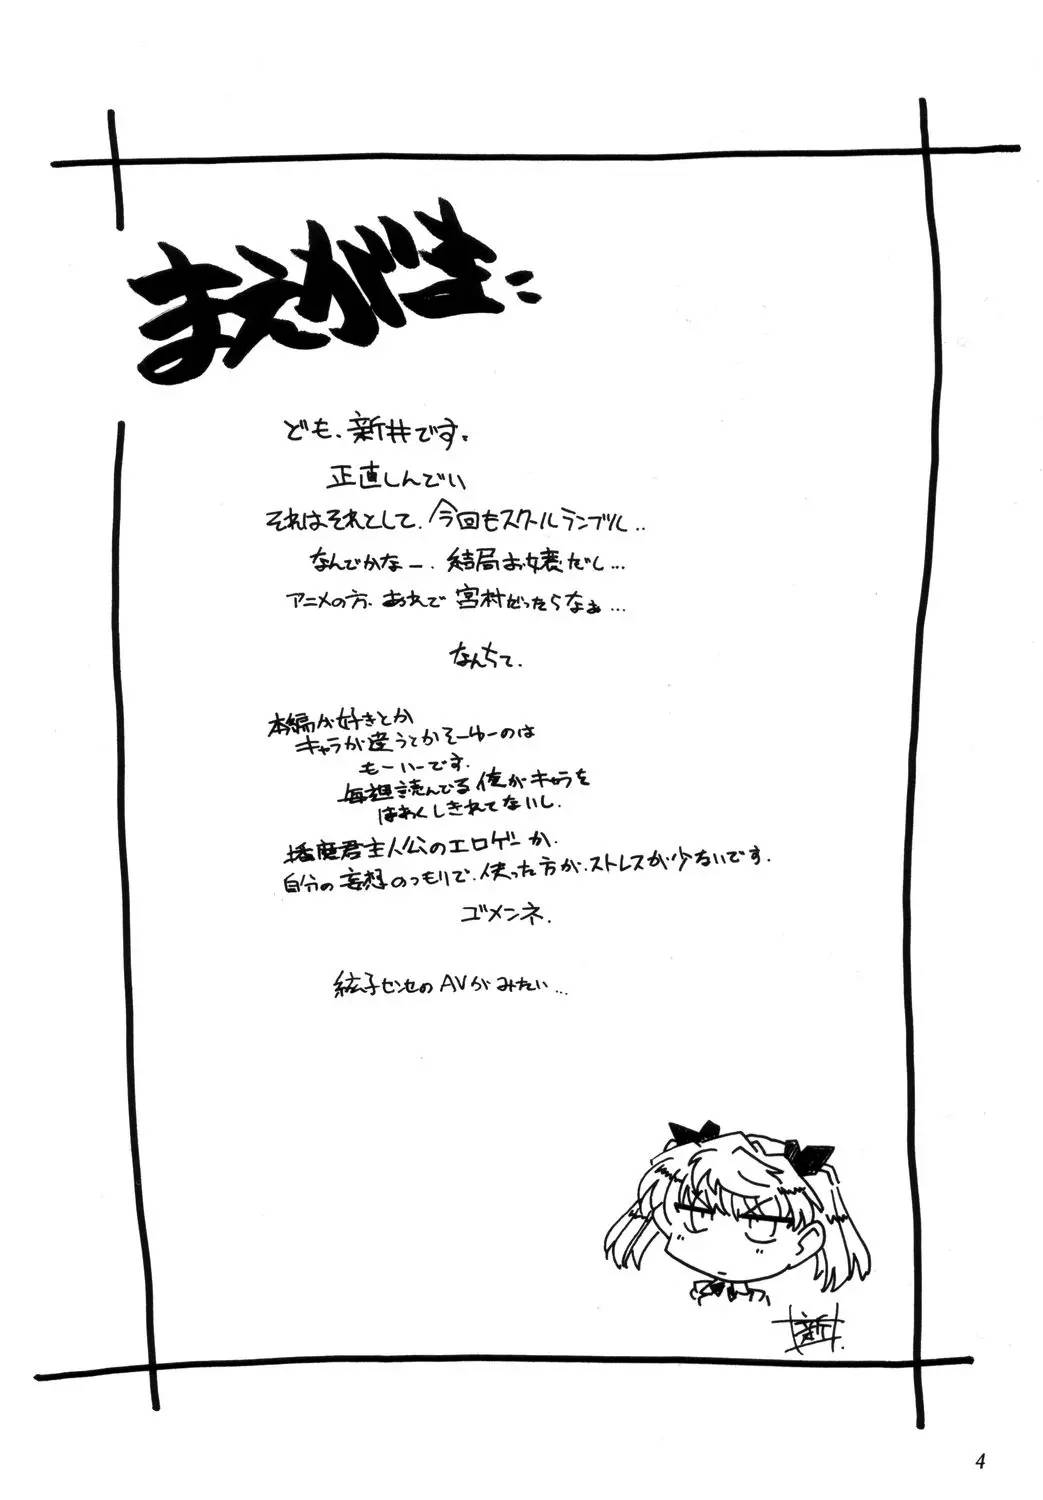 まえがき:
ども、新井です。
正直しんでい
それはそれとして、今回もスクールランブル..
なんでかなー、結局お嬢だし...
アニメの方、あれで宮村だったらなぁ...
なんちて、
本編が好きとか
キャラが違うとかそーゆーのは
もーいーです。
毎週読んでる俺がキャラを
はあくしきれてないし、
播磨君主人公のエロゲーか、
自分の妄想のつもりで、使った方が、ストレスが少ないです。
ゴメンネ.
絃子センセのAVがみたい...
新井.
4